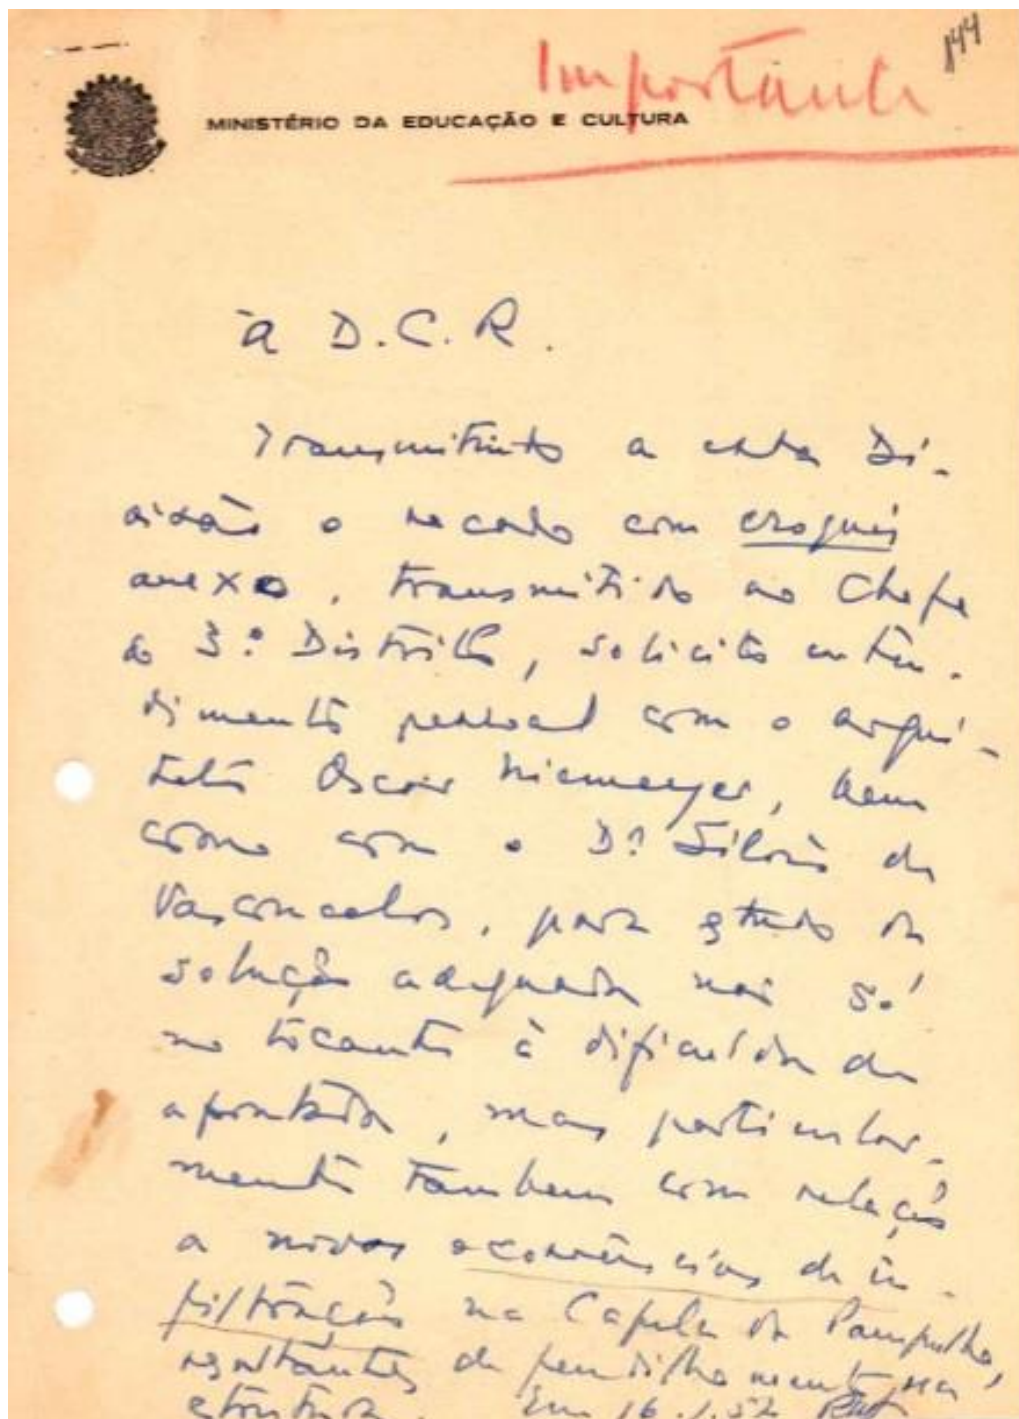 Importante
144
MINISTÉRIO DA EDUCAÇÃO E CULTURA
à D.C.R.
Transmitindo a esta Di-
visão o recado com croquis
anexo, transmitido ao Chefe
do 3º Distrito, solicito enten-
dimento pessoal com o arqui-
teto Oscar Niemeyer, bem
como com o Dr. Silvio de
Vasconcelos, para estudo da
solução adequada não só
no tocante à dificuldade
apontada, mas particular-
mente tambem com relação
a novas ocorrências de in-
filtração na Capela da Pampulha,
resultantes de fendilhamento na
estrutura. Em 16.1.52